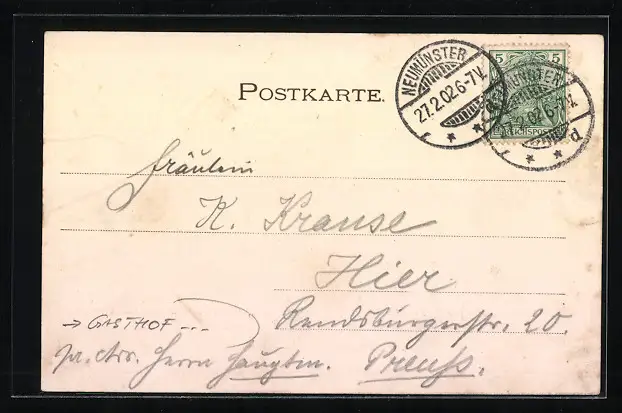 POSTKARTE.
NEUMÜNSTER
27.2.02.6-7V.
5 5
REICHSPOST
NEUMÜNSTER
27.2.02.6-7V.
* * d
Fräulein
K. Krause
Hier
Rendsburgerstr. 20.
→ GASTHOF ---
pr. Adr. Herrn Hauptm. Preuss.